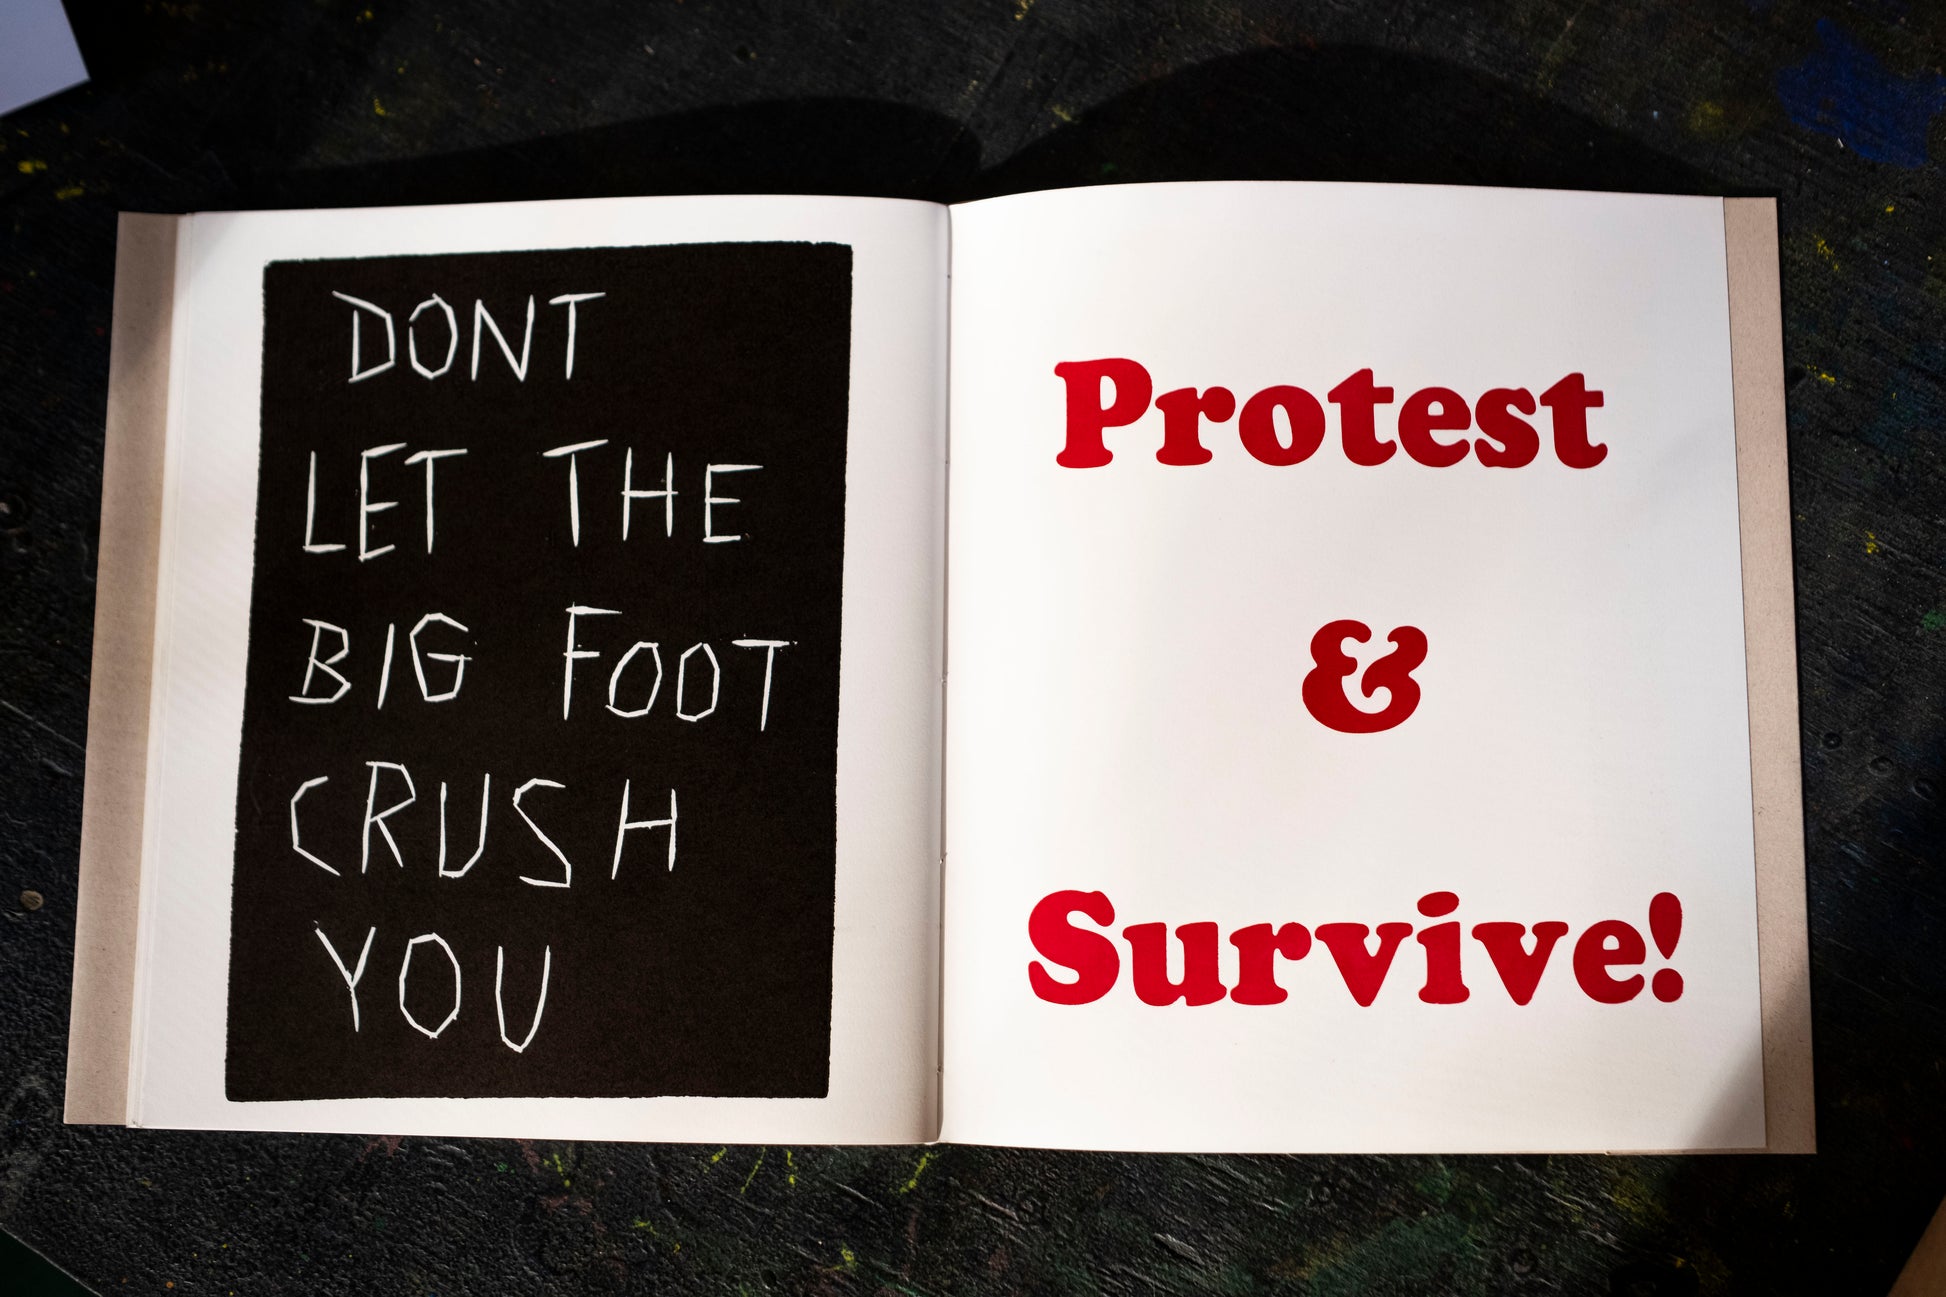 DONT
LET THE
BIG FOOT
CRUSH
YOU
Protest
&
Survive!